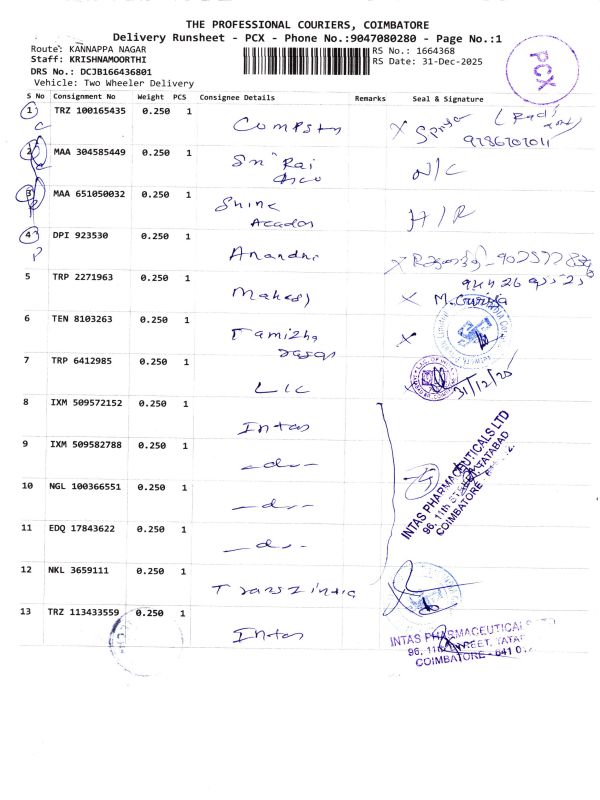 THE PROFESSIONAL COURIERS, COIMBATORE
Delivery Runsheet - PCX - Phone No.:9047080280 - Page No.:1
Route: KANNAPPA NAGAR
RS No.: 1664368
Staff: KRISHNAMOORTHI
RS Date: 31-Dec-2025
DRS No.: DCJB166436801
Vehicle: Two Wheeler Delivery
PCX
S No Consignment No Weight PCS Consignee Details Remarks Seal & Signature
1 TRZ 100165435 0.250 1
2 MAA 304585449 0.250 1 Sri Rai N/C
3 MAA 651050032 0.250 1 Shine H/R
4 DPI 923530 0.250 1 Anandhi
5 TRP 2271963 0.250 1 Mahesj
6 TEN 8103263 0.250 1 Tamizha
7 TRP 6412985 0.250 1 LIC 31/12/25
8 IXM 509572152 0.250 1 Intas
9 IXM 509582788 0.250 1 —do—
10 NGL 100366551 0.250 1 —do—
11 EDQ 17843622 0.250 1 —do—
INTAS PHARMACEUTICALS LTD
96, 11th STREET, TATABAD
COIMBATORE
12 NKL 3659111 0.250 1
13 TRZ 113433559 0.250 1 Intas
INTAS PHARMACEUTICALS LTD
96, 11th STREET, TATABAD
COIMBATORE - 641 012